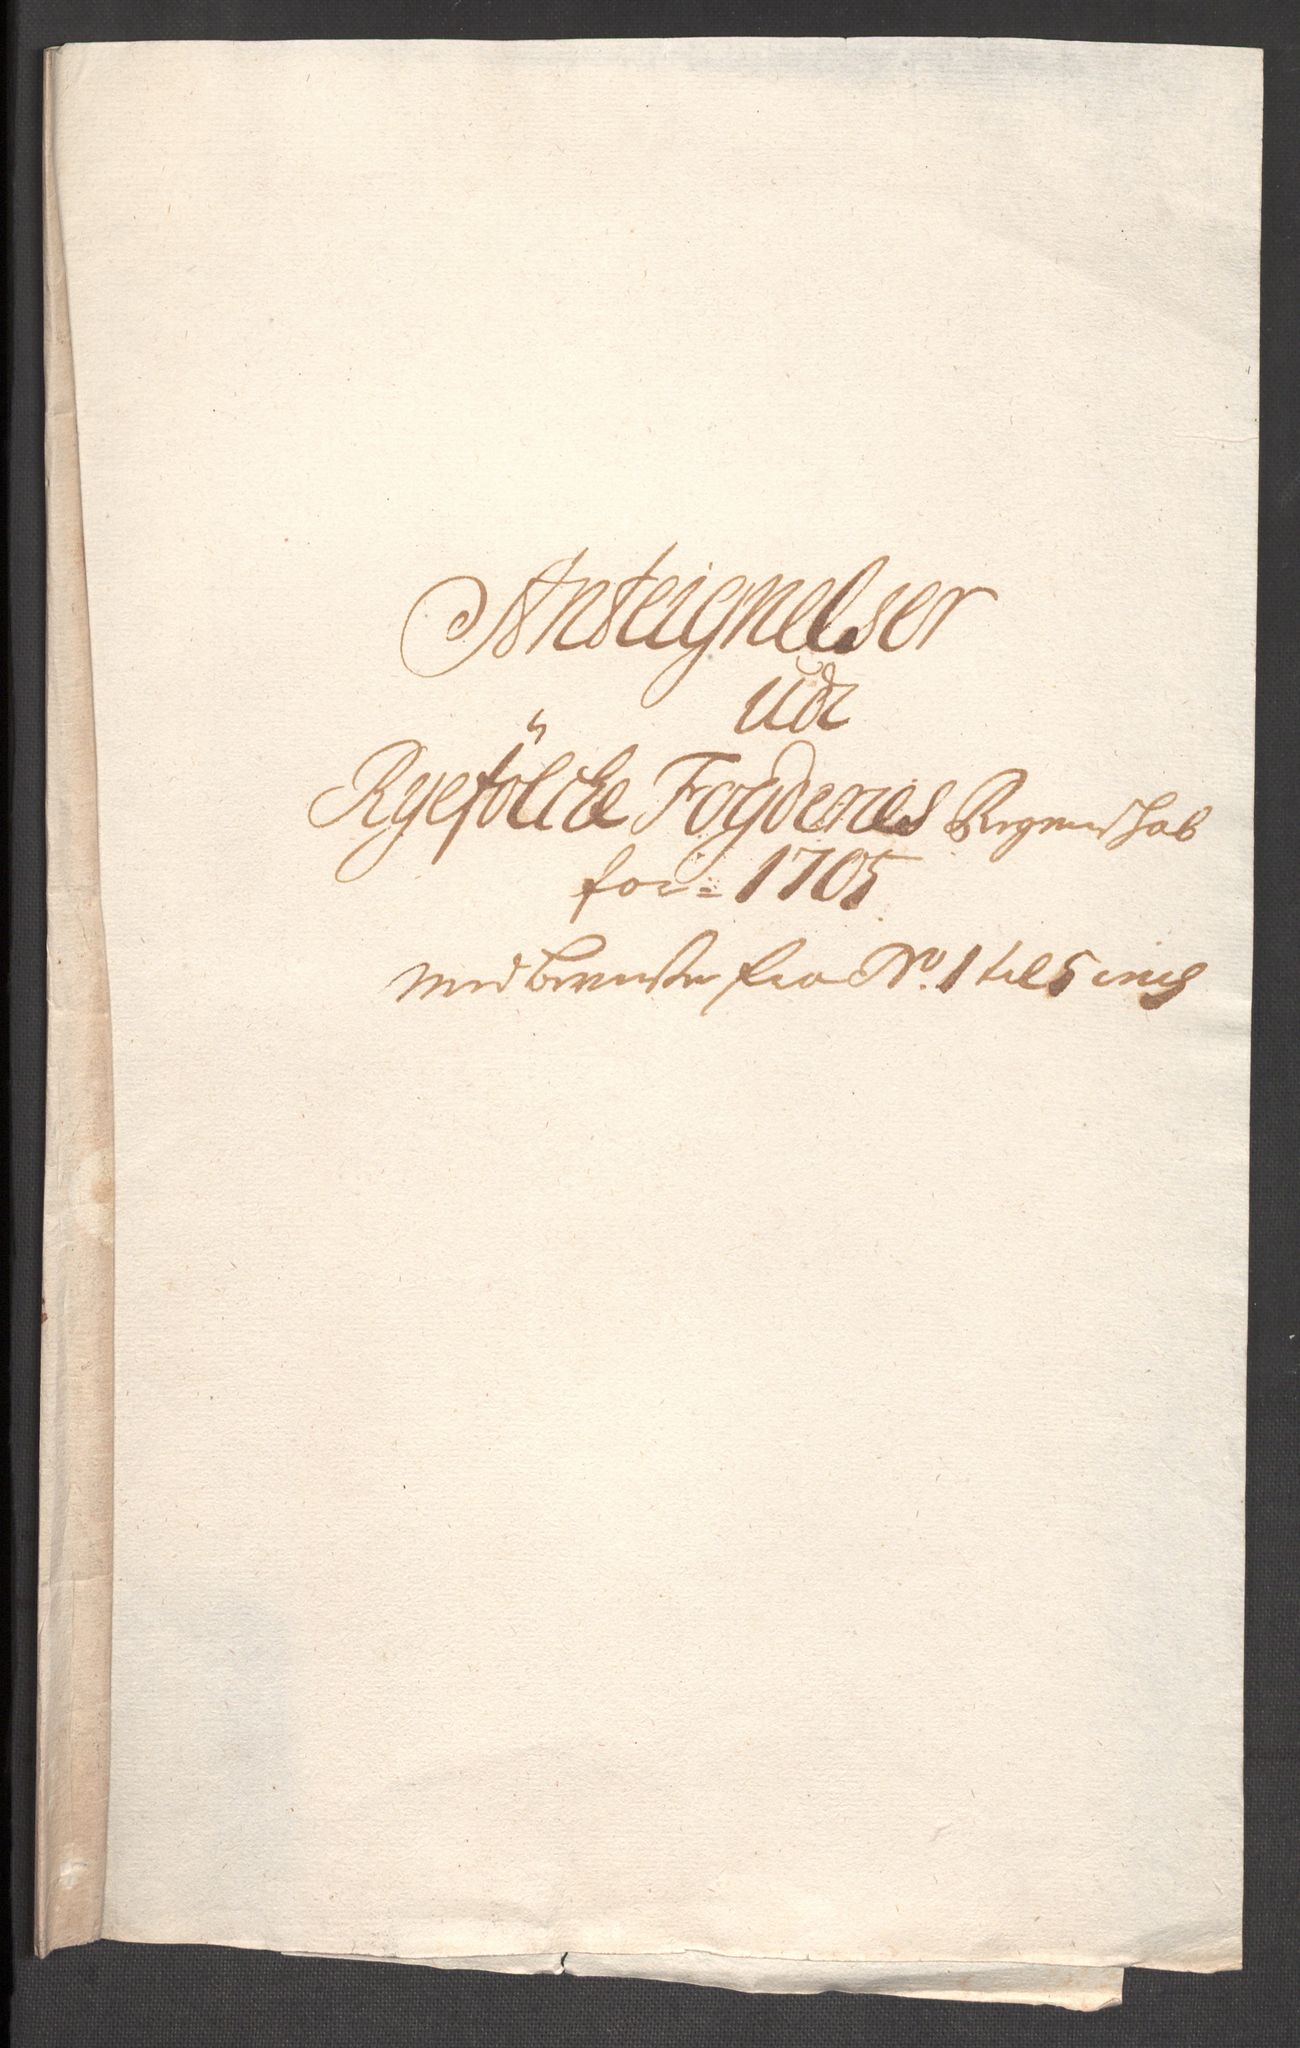 Anteignelser
udi
Ryefölcke Fogderies Regenschab
for = 1705
med beviiser fra No. 1 til 5 incl